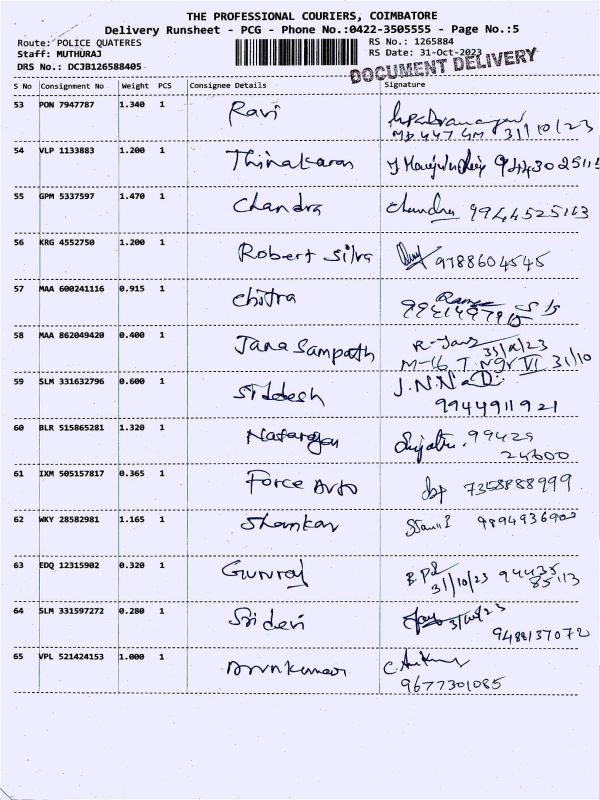 THE PROFESSIONAL COURIERS, COIMBATORE
Delivery Runsheet - PCG - Phone No.:0422-3505555 - Page No.:5
Route: POLICE QUATERES RS No.: 1265884
Staff: MUTHURAJ RS Date: 31-Oct-2023
DRS No.: DCJB126588405 DOCUMENT DELIVERY
S No Consignment No Weight PCS Consignee Details Signature
53 PON 7947787 1.340 1 Ravi
31/10/23
54 VLP 1133883 1.200 1 Thinakaran
55 GPM 5337597 1.470 1 Chandra Chandra 9944525113
56 KRG 4552750 1.200 1 Robert Silva 9788604545
57 MAA 600241116 0.915 1 Chitra
58 MAA 862049420 0.400 1 Jana Sampath
31/10
59 SLM 331632796 0.600 1 Siddesh
9944911921
60 BLR 515865281 1.320 1 Natarajan 99425
24600
61 IXM 505157817 0.365 1 Force Auto 7358888999
62 WKY 28582981 1.165 1 Shankar
63 EDQ 12315902 0.320 1 Gunraj 94435
31/10/23 85113
64 SLM 331597272 0.280 1 Sri devi 31/10/23
9488137072
65 VPL 521424153 1.000 1 Arunkumar
9677301085